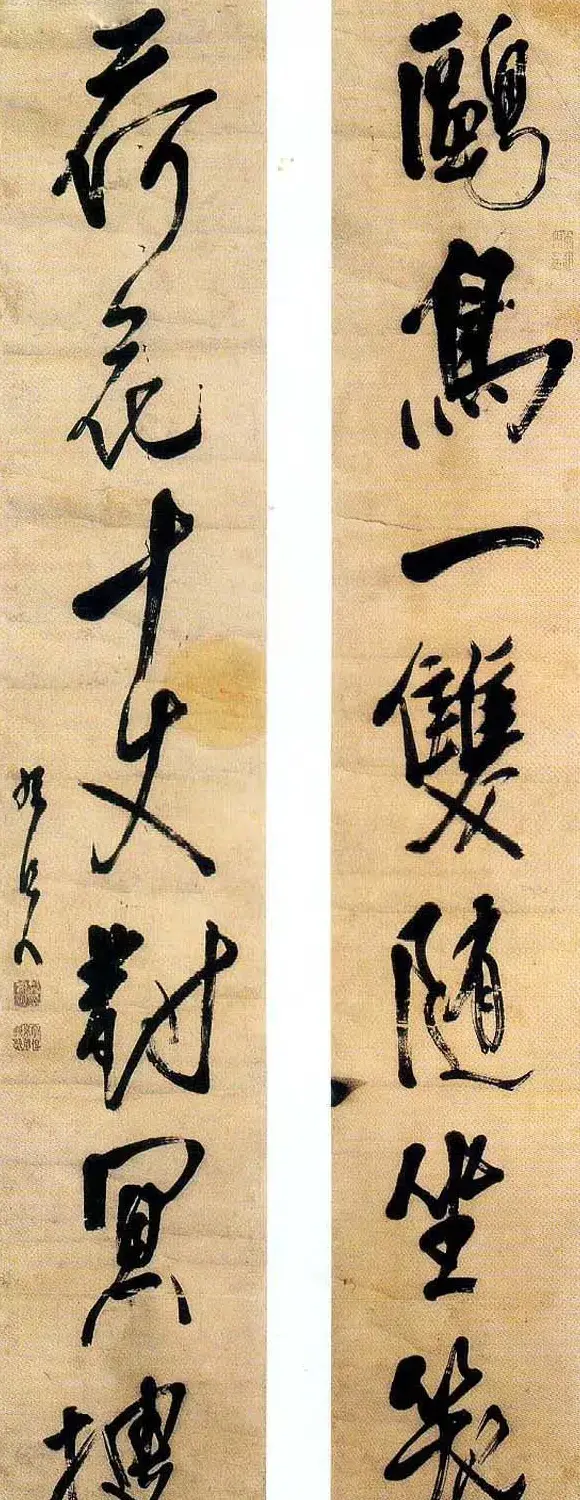 鷗鳥一雙随坐笑
荷花十丈對冥搜